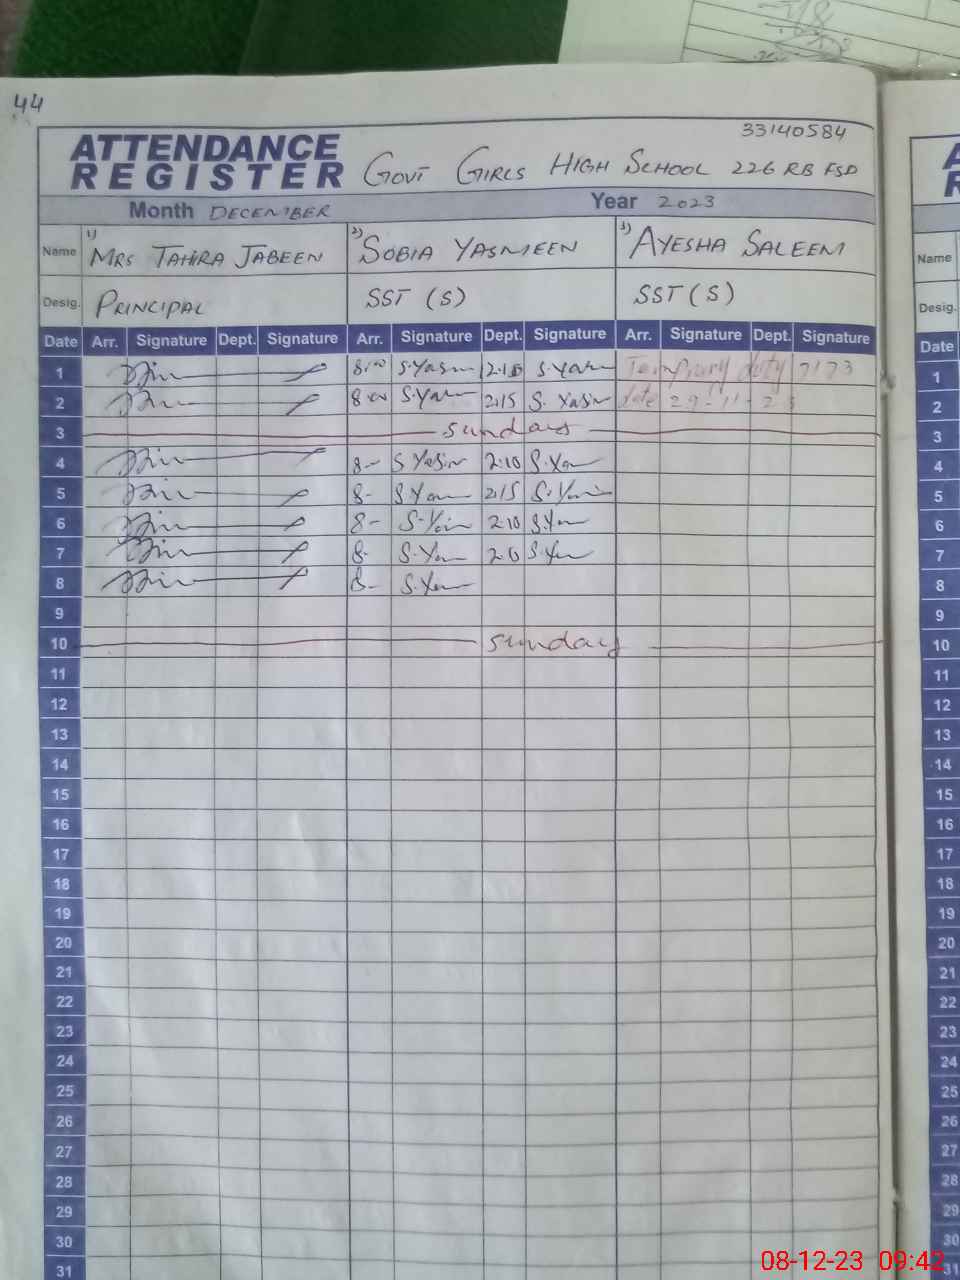 44
33140584
ATTENDANCE
REGISTER
GOVT GIRLS HIGH SCHOOL 226 RB FSD
Month DECEMBER Year 2023
Name 1) MRS TAHIRA JABEEN 2) SOBIA YASMEEN 3) AYESHA SALEEM
Desig. PRINCIPAL SST (S) SST (S)
Date Arr. Signature Dept. Signature Arr. Signature Dept. Signature Arr. Signature Dept. Signature
1 8:00 S.Yasm 12.10 Temprary duty
2 8:00 2:15 S. Yasin date 29-11-23
3 sunday
4 8- S Yasin 2:10
5 8- 2:15
6 8- 2:10
7 8-
8 8-
9
10 sunday
11
12
13
14
15
16
17
18
19
20
21
22
23
24
25
26
27
28
29
30
31
Name
Desig.
Date
1
2
3
4
5
6
7
8
9
10
11
12
13
14
15
16
17
18
19
20
21
22
23
24
25
26
27
28
29
30
31
08-12-23 09:42